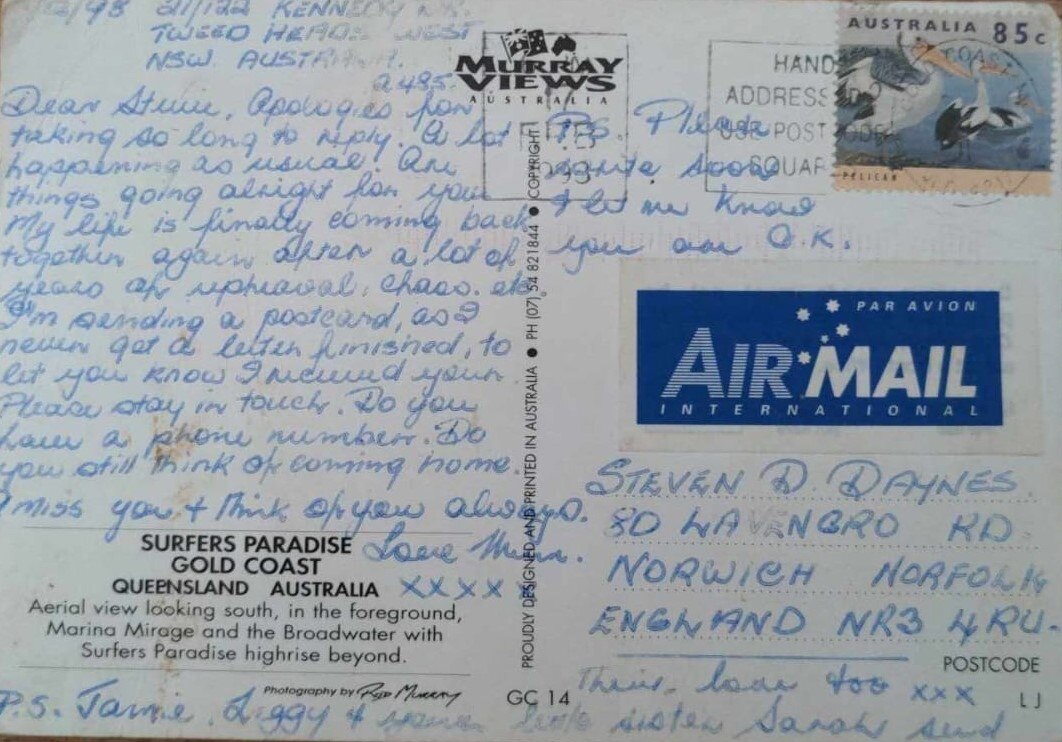 /2/93 211/122 KENNEDY DR.
TWEED HEADS WEST
NSW AUSTRALIA.
2485.
Dear Steve, Apologies for
taking so long to reply. A lot
happening as usual. Are
things going alright for you
My life is finally coming back
together again after a lot of
years of upheaval, chaos. etc.
I'm sending a postcard, as I
never get a letter finished, to
let you know I received your
Please stay in touch. Do you
have a phone number. Do
you still think of coming home.
I miss you + think of you always.
Love Mum.
xxxx
SURFERS PARADISE
GOLD COAST
QUEENSLAND AUSTRALIA
Aerial view looking south, in the foreground,
Marina Mirage and the Broadwater with
Surfers Paradise highrise beyond.
Photography by Rod Murray
P.S. Jamie, Ziggy & your little sister Sarah send
Their love too xxx
MURRAY
VIEWS
AUSTRALIA
PROUDLY DESIGNED AND PRINTED IN AUSTRALIA ● PH (07) 54 821844 ● COPYRIGHT
GC 14
P.S. Please
write soon
& let me know
you are O.K.
HAND
ADDRESS
USE POSTCODE
SQUAR
AUSTRALIA 85c
PELICAN
COAST
PAR AVION
AIR MAIL
INTERNATIONAL
STEVEN D. DAYNES.
80 LAVENGRO RD.
NORWICH NORFOLK
ENGLAND NR3 4RU.
POSTCODE
LJ